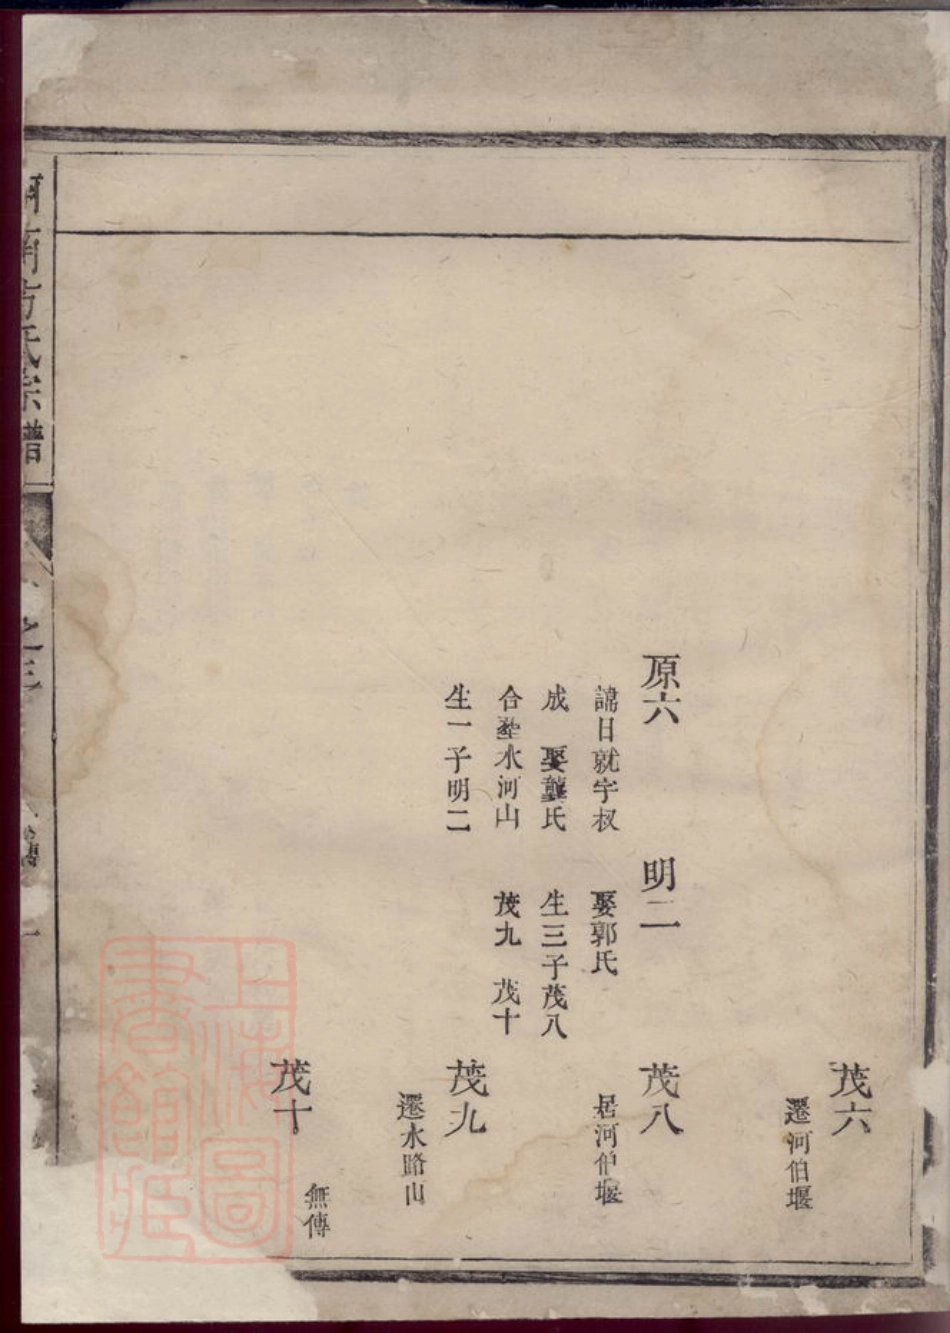 茂六
遷河伯堰
原六
諱日就字叔
成 娶龔氏
合塟水河山
生一子明二
明二
娶郭氏
生三子茂八
茂九 茂十
茂八
居河伯堰
茂九
遷水路山
茂十
無傳
河南方氏宗譜
上海圖書館藏